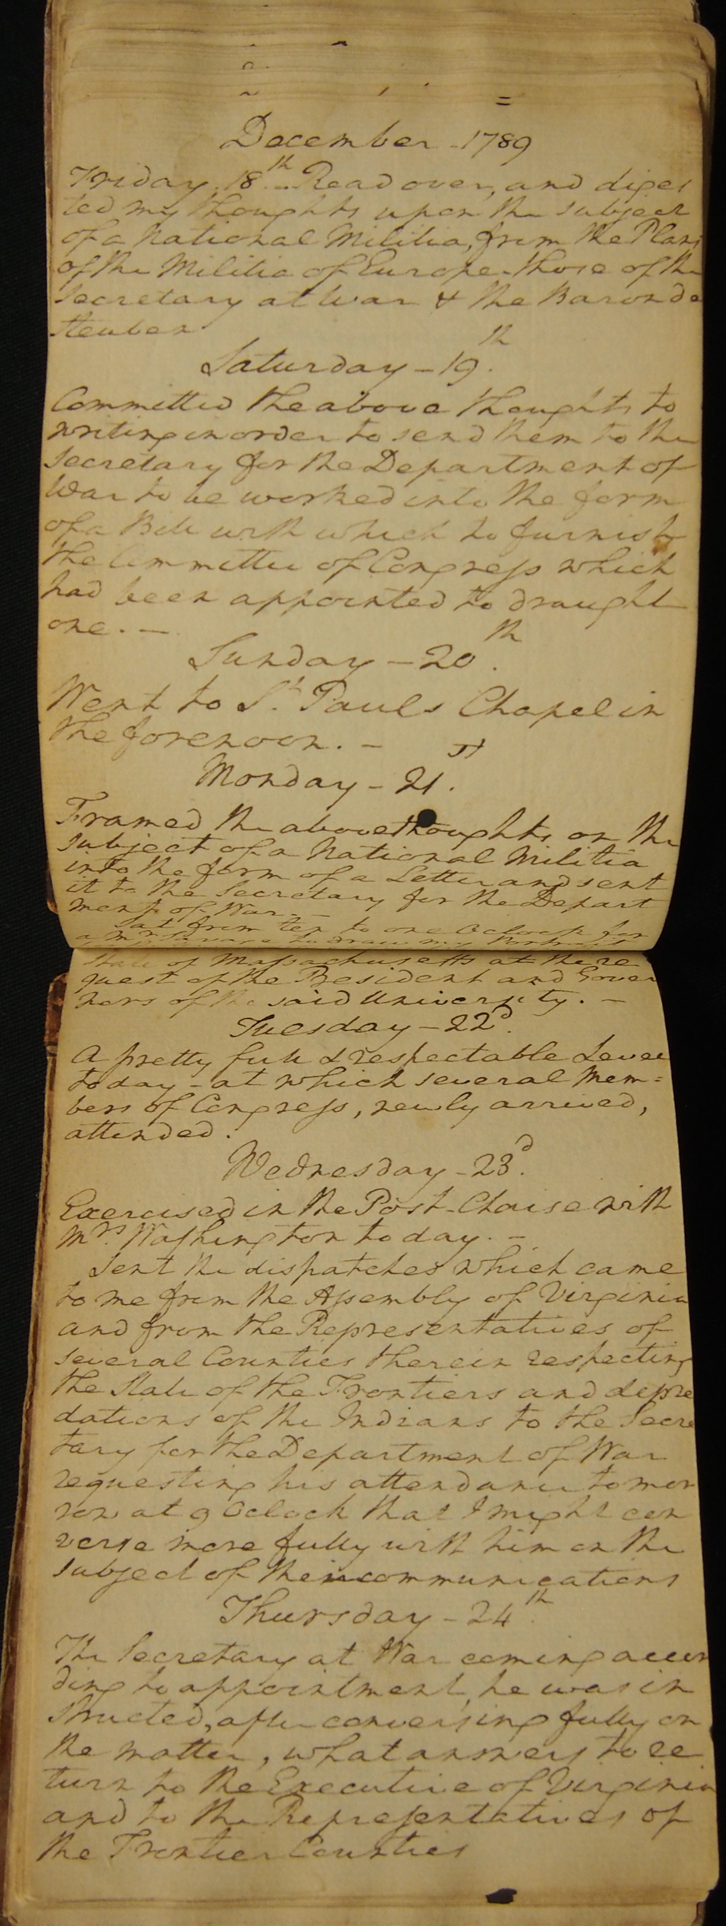 December - 1789
Friday 18th.. Read over, and diges
ted my thoughts upon the subject
of a National Militia, from the Plans
of the Militia of Europe - those of the
Secretary at War & the Baron de
Steuben
Saturday - 19th.
Committed the above thoughts to
writing in order to send them to the
Secretary for the Department of
War to be worked into the form
of a Bill with which to furnish
the Committee of Congress which
had been appointed to draught
one. -
Sunday - 20th.
Went to St. Pauls Chapel in
the forenoon. -
Monday - 21st.
Framed the above thoughts on the
subject of a National Militia
into the form of a Letter and sent
it to the Secretary for the Depart
ment of War. -
Sat from ten to one Oclock for
a to draw my Portrait
State of Massachusetts at the re
quest of the President and Gover
nors of the said University. -
Tuesday - 22d.
A pretty full & respectable Levee
today - at which several Mem=
bers of Congress, newly arrived,
attended.
Wednesday - 23d.
Exercised in the Post-Chaise with
Mrs. Washington today. -
Sent the dispatches which came
to me from the Assembly of Virginia
and from the Representatives of
several Counties therein respecting
the State of the Frontiers and depre
dations of the Indians to the Secre
tary for the Department of War
requesting his attendance tomor
row at 9 Oclock that I might con
verse more fully with him on the
subject of their communications
Thursday - 24th.
The Secretary at War coming accor
ding to appointment, he was in
structed, after conversing fully on
the matter, what answers to re
turn to the Executive of Virginia
and to the Representatives of
the Frontier Counties